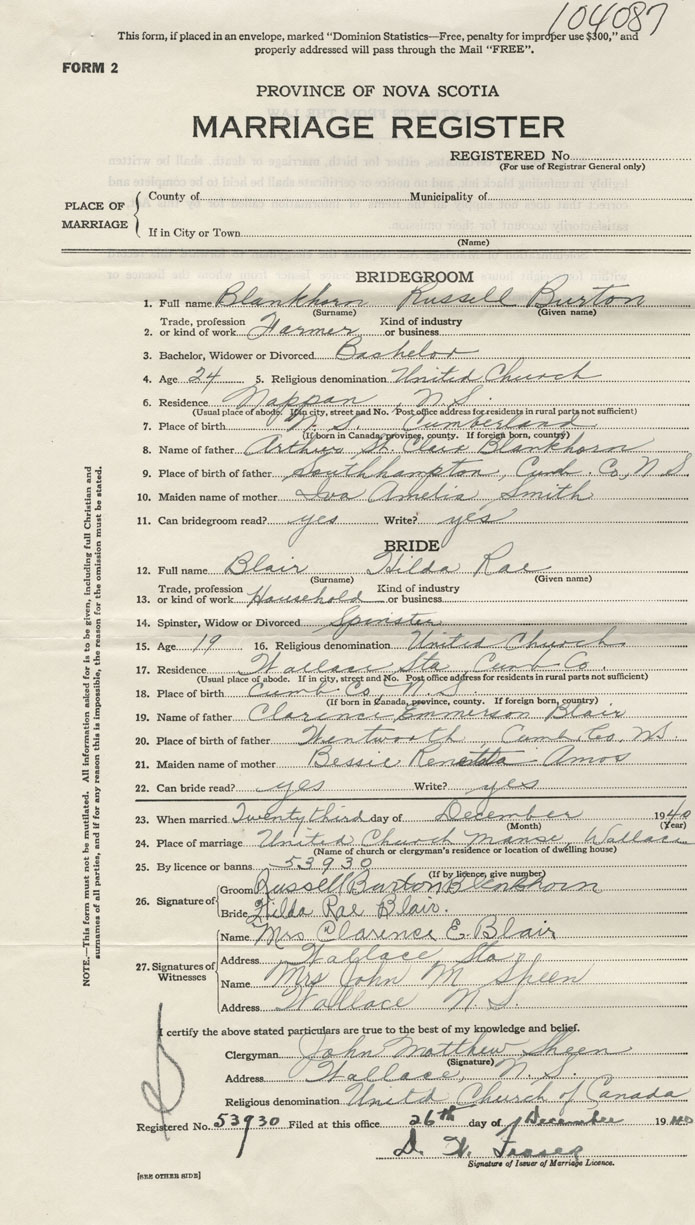 104087
This form, if placed in an envelope, marked "Dominion Statistics—Free, penalty for improper use $300," and
properly addressed will pass through the Mail "FREE".
FORM 2
PROVINCE OF NOVA SCOTIA
MARRIAGE REGISTER
REGISTERED No.
(For use of Registrar General only)
PLACE OF MARRIAGE
County of Municipality of
If in City or Town
(Name)
BRIDEGROOM
1. Full name Blenkhorn Russell Burton
(Surname) (Given name)
2. Trade, profession or kind of work Farmer Kind of industry or business
3. Bachelor, Widower or Divorced Bachelor
4. Age 24 5. Religious denomination United Church
6. Residence Nappan, N.S.
(Usual place of abode. If in city, street and No. Post office address for residents in rural parts not sufficient)
7. Place of birth N.S. Cumberland
(If born in Canada, province, county. If foreign born, country)
8. Name of father Arthur St. Clair Blenkhorn
9. Place of birth of father Southhampton, Cumb. Co, N.S.
10. Maiden name of mother Iva Amelia Smith
11. Can bridegroom read? yes Write? yes
BRIDE
12. Full name Blair Hilda Rae
(Surname) (Given name)
13. Trade, profession or kind of work Household Kind of industry or business
14. Spinster, Widow or Divorced Spinster
15. Age 19 16. Religious denomination United Church
17. Residence Wallace Sta, Cumb Co.
(Usual place of abode. If in city, street and No. Post office address for residents in rural parts not sufficient)
18. Place of birth Cumb Co, N.S.
(If born in Canada, province, county. If foreign born, country)
19. Name of father Clarence Emmerson Blair
20. Place of birth of father Wentworth, Cumb. Co, N.S.
21. Maiden name of mother Bessie Amos
22. Can bride read? yes Write? yes
23. When married Twenty third day of December 1940
(Month) (Year)
24. Place of marriage United Church Manse, Wallace
(Name of church or clergyman's residence or location of dwelling house)
25. By licence or banns 53930
(If by licence, give number)
26. Signature of
Groom Russell Burton Blenkhorn
Bride Hilda Rae Blair.
27. Signatures of Witnesses
Name Mrs Clarence E. Blair
Address Wallace, Sta
Name Mrs John M Sheen
Address Wallace N.S.
I certify the above stated particulars are true to the best of my knowledge and belief.
Clergyman John Matthew Sheen
(Signature)
Address Wallace, N.S.
Religious denomination United Church of Canada
Registered No. 53930 Filed at this office 26th day of December 1940
D. W.
Signature of Issuer of Marriage Licence.
[SEE OTHER SIDE]
NOTE.—This form must not be mutilated. All information asked for is to be given, including full Christian and
surnames of all parties, and if for any reason this is impossible, the reason for the omission must be stated.